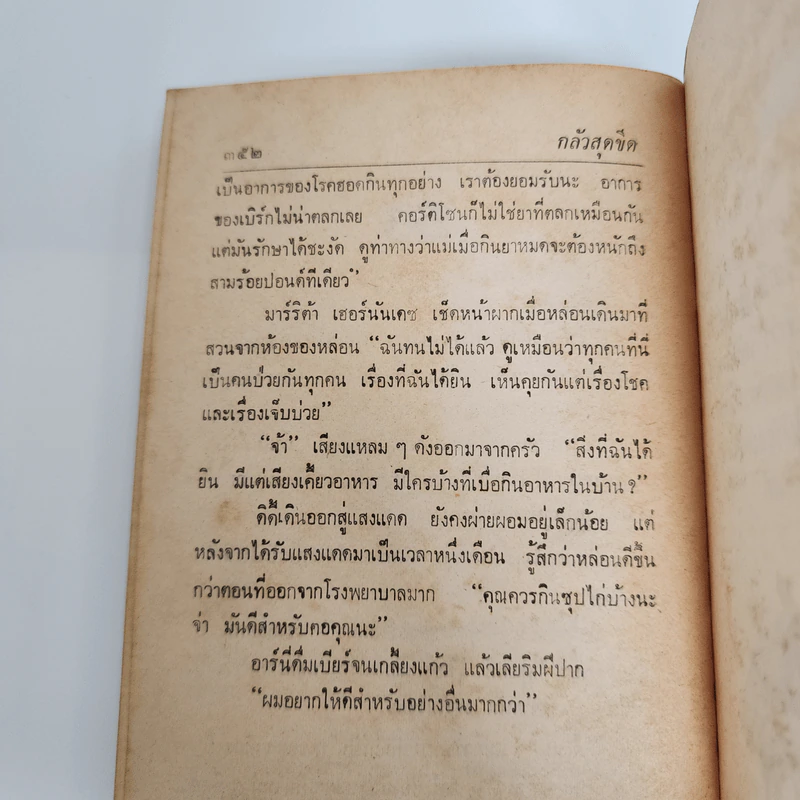 ๓๕๒ กลัวสุดขีด
เป็นอาการของโรคฮอดกินทุกอย่าง เราต้องยอมรับนะ อาการ
ของเบิร์กไม่น่าตลกเลย คอร์ติโซนก็ไม่ใช่ยาที่ตลกเหมือนกัน
แต่มันรักษาได้ชะงัด ดูท่าทางว่าแม่เมื่อกินยาหมดจะต้องหนักถึง
สามร้อยปอนด์ทีเดียว”
มาร์ริต้า เฮอร์นันเดซ เช็ดหน้าผากเมื่อหล่อนเดินมาที่
สวนจากห้องของหล่อน “ฉันทนไม่ได้แล้ว ดูเหมือนว่าทุกคนที่นี่
เป็นคนป่วยกันทุกคน เรื่องที่ฉันได้ยิน เห็นคุยกันแต่เรื่องโชค
และเรื่องเจ็บป่วย”
“จ้า” เสียงแหลม ๆ ดังออกมาจากครัว “สิ่งที่ฉันได้
ยิน มีแต่เสียงเคี้ยวอาหาร มีใครบ้างที่เบื่อกินอาหารในบ้าน ?”
ดิดี้เดินออกสู่แสงแดด ยังคงผ่ายผอมอยู่เล็กน้อย แต่
หลังจากได้รับแสงแดดมาเป็นเวลาหนึ่งเดือน รู้สึกว่าหล่อนดีขึ้น
กว่าตอนที่ออกจากโรงพยาบาลมาก “คุณควรกินซุปไก่บ้างนะ
จ๋า มันดีสำหรับคอคุณนะ”
อาร์นี่ดื่มเบียร์จนเกลี้ยงแก้ว แล้วเลียริมฝีปาก
“ผมอยากให้ดีสำหรับอย่างอื่นมากกว่า”